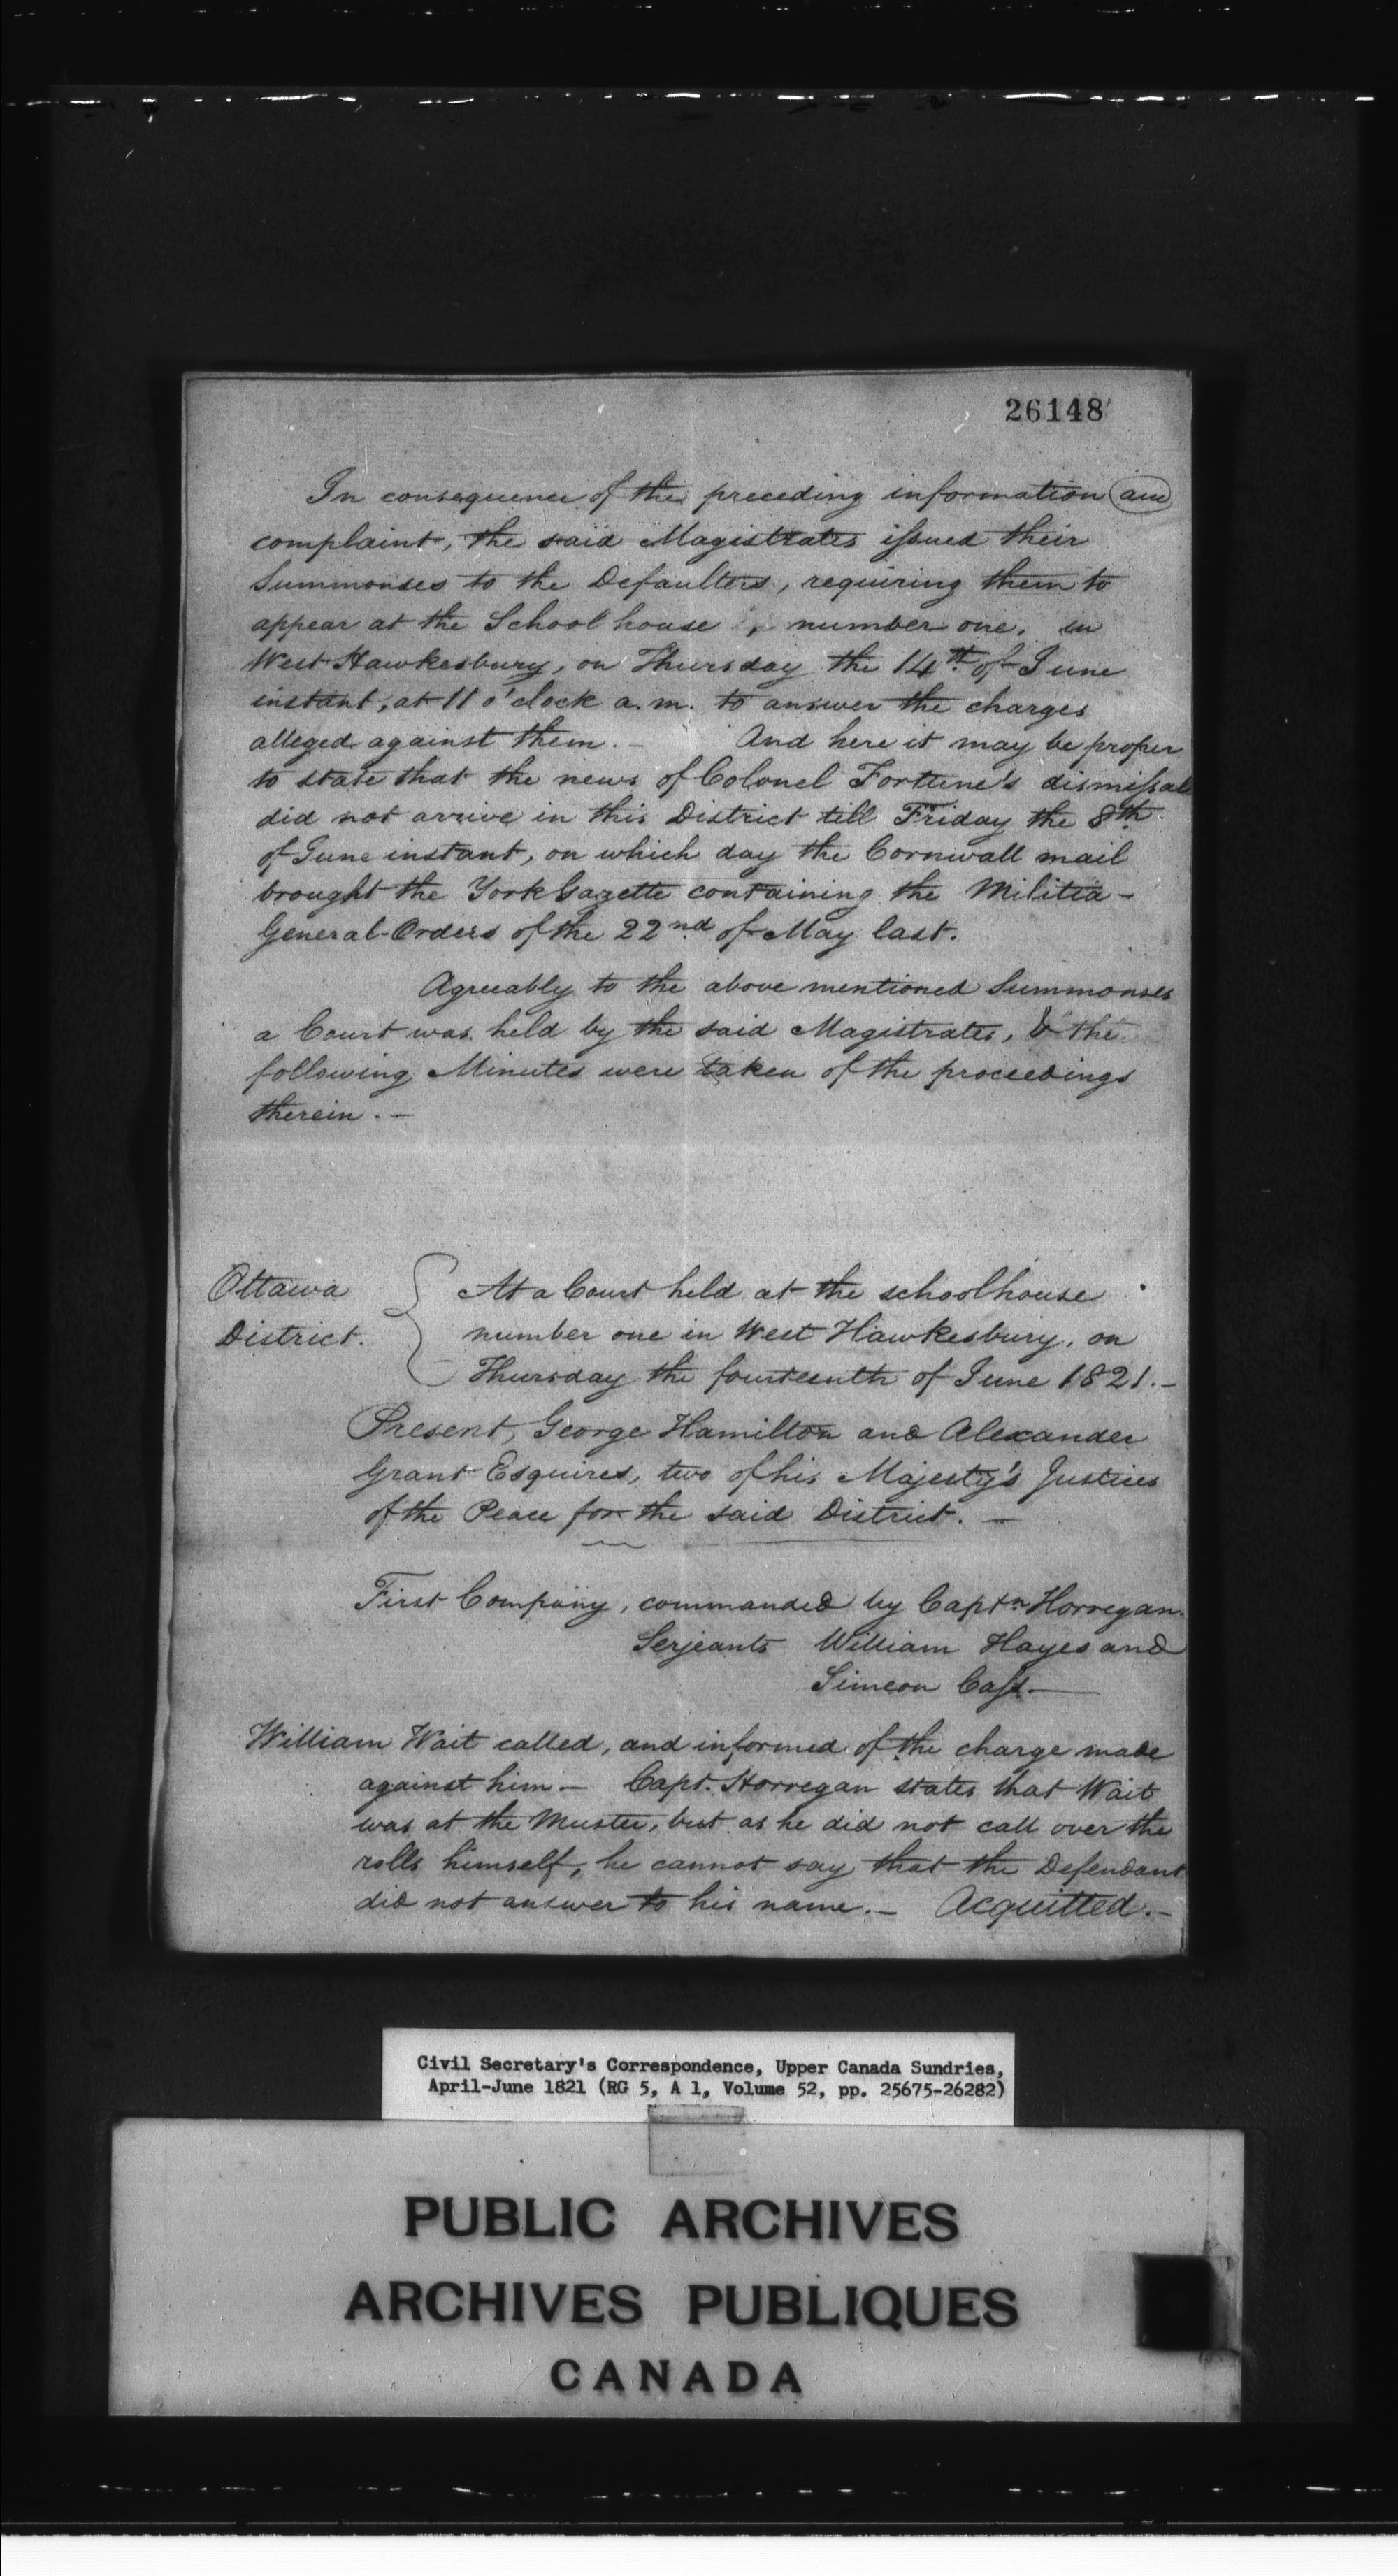 26148
In consequence of the preceding information and
complaint, the said Magistrates issued their
Summonses to the Defaulters, requiring them to
appear at the School house, number one, in
West Hawkesbury, on Thursday the 14th. of June
instant, at 11 o'clock a.m. to answer the charges
alleged against them. — And here it may be proper
to state that the news of Colonel Fortune's dismissal
did not arrive in this District till Friday the 8th
of June instant, on which day the Cornwall mail
brought the York Gazette containing the Militia-
General-Orders of the 22nd of May last.
Agreeably to the above mentioned Summonses
a Court was held by the said Magistrates, & the
following Minutes were taken of the proceedings
therein. —
Ottawa District. { At a Court held at the schoolhouse
number one in West Hawkesbury, on
Thursday the fourteenth of June 1821. —
Present, George Hamilton and Alexander
Grant Esquires, two of his Majesty's Justices
of the Peace for the said District. —
First Company, commanded by Captn. Horregan.
Serjeants William Hayes and
Simeon Cass —
William Wait called, and informed of the charge made
against him — Capt. Horregan states that Wait
was at the Muster, but as he did not call over the
rolls himself, he cannot say that the Defendant
did not answer to his name. — Acquitted. —
Civil Secretary's Correspondence, Upper Canada Sundries,
April-June 1821 (RG 5, A 1, Volume 52, pp. 25675-26282)
PUBLIC ARCHIVES
ARCHIVES PUBLIQUES
CANADA